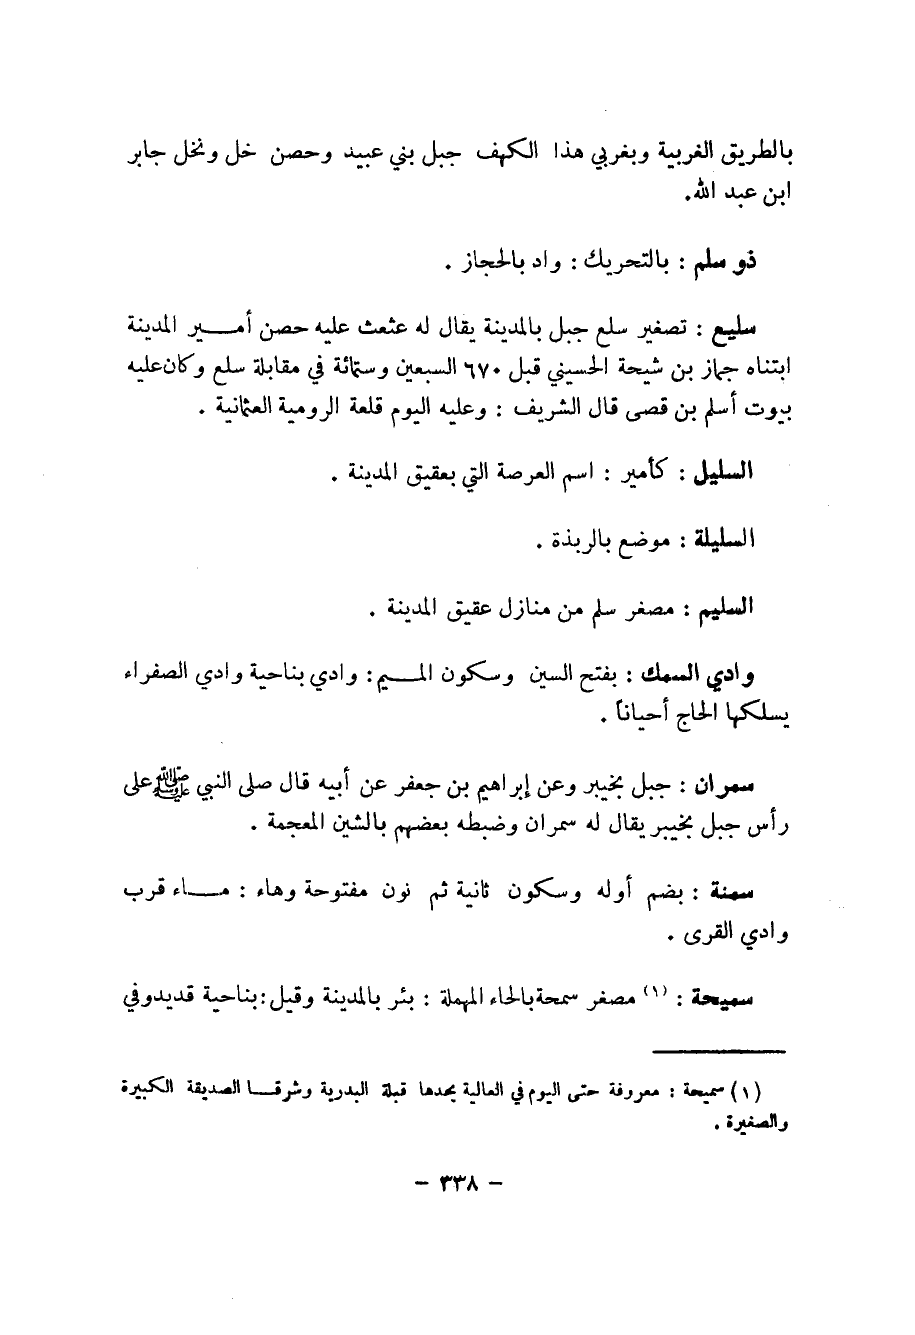 بالطريق الغربية وبغربي هذا الكهف جبل بني عبيد وحصن خل ونخل جابر
ابن عبد الله.
ذو سلم : بالتحريك : واد بالحجاز .
سليع : تصغير سلع جبل بالمدينة يقال له عثعث عليه حصن أمير المدينة
ابتناه جماز بن شيحة الحسيني قبل ٦٧٠ السبعين وستمائة في مقابلة سلع وكان عليه
بيوت أسلم بن قصى قال الشريف : وعليه اليوم قلعة الرومية العثمانية .
السليل : كأمير : اسم العرصة التي بعقيق المدينة .
السليلة : موضع بالربذة .
السليم : مصغر سلم من منازل عقيق المدينة .
وادي السمك : بفتح السين وسكون الميم : وادي بناحية وادي الصفراء
يسلكها الحاج أحياناً .
سمران : جبل بخيبر وعن إبراهيم بن جعفر عن أبيه قال صلى النبي ﷺ على
رأس جبل بخيبر يقال له سمران وضبطه بعضهم بالشين المعجمة .
سمنة : بضم أوله وسكون ثانية ثم نون مفتوحة وهاء : ماء قرب
وادي القرى .
سميحة : (١) مصغر سمحة بالحاء المهملة : بئر بالمدينة وقيل : بناحية قديد وفي
(١) سميحة : معروفة حتى اليوم في العالية يحدها قبلة البدرية وشرقا الصديقة الكبيرة
والصغيرة .
- ٣٣٨ -